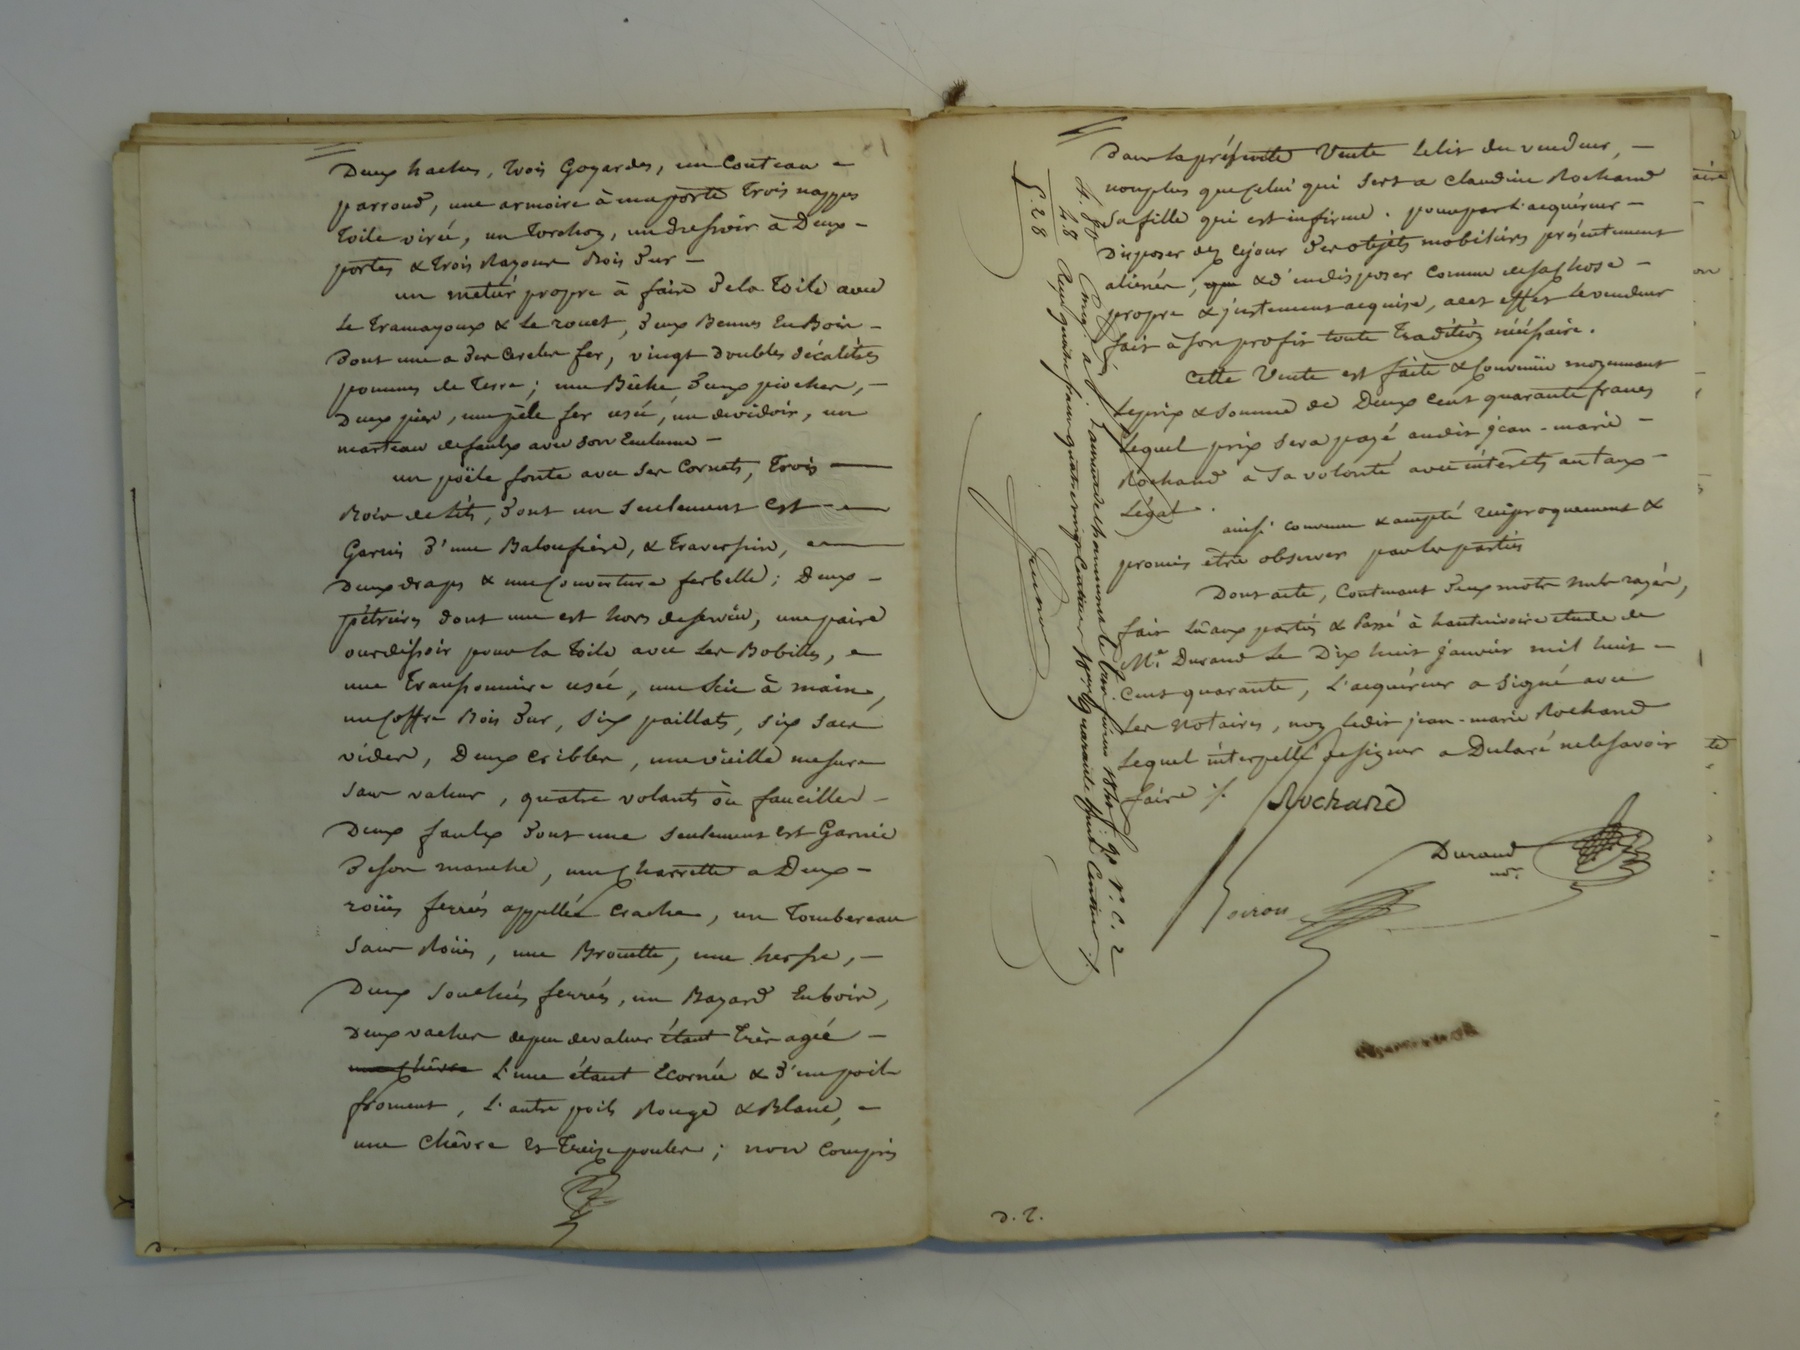 Deux haches, trois Goyardes, un Couteau
parroud, une armoire à une porte trois nappes
toile virée, un torchon, un dressoir à Deux
portes & trois Rayons Bois dur
un métier propre à faire de la toile avec
Le tramayoux & Le rouet, deux Bennes En Bois
dont une a des Cercles fer, vingt doubles décalitres
pommes de terre; une Bêche deux pioches,
Deux pics, une pèle fer usée, un devidoir, un
marteau de faulx avec son Enclume
un poële fonte avec ses Cornets, trois
Bois de Lits, dont un seulement est
Garni d'une Baloufière, & traversin,
Deux draps & une Couverture ferbelle; Deux
pétrières dont une est hors de service, une paire
ourdissoir pour la toile avec Les Bobilles,
une transponnière usée, une Scie à main,
un Coffre Bois dur, Six paillats, Six Sacs
vides, Deux Cribles, une vieille mesure
sans valeur, quatre volants ou faucilles
Deux faulx dont une seulement est Garnie
de son manche, une Charrette a Deux
roües ferrées appellée Crache, un Tombereau
sans Roües, une Brouette, une herse,
Deux souches ferrés, un Bayard En bois,
Deux vaches de peu de valeur étant très agée
une Chèvre L'une étant Ecornée & d'un poil
froment, L'autre poils Rouge & Blanc,
une Chêvre et treize poules; non Compris
D.
dans la présente Vente Le lit du vendeur,
non plus que Celui qui sert a Claudine Rochand
sa fille qui est infirme. pour par L'acquéreur
Disposer dez ce jour des objets mobiliers présentement
aliénés, que & d'en disposer Comme de sa chose
propre & justement acquise, a cet effet Le vendeur
fait à son profit toute tradition nécéssaire.
Cette Vente est faite & Convenue moyennant
Le prix & somme de Deux Cent quarante francs
Lequel prix sera payé audit jean-marie
Rochand à sa volonté avec intérêts au taux
Légal.
ainsi convenu & accepté reciproquement &
promis être observer par les parties
Dont acte, Contenant deux mots nuls rayés,
fait Lû aux parties & Passé à hauterivoire etude de
Me. Durand Le Dix huit janvier mil huit
Cent quarante, L'acquéreur a signé avec
Les Notaires, non Ledit jean-marie Rochand
Lequel interpellé de signer a Déclaré ne le savoir
faire ./.
Rochand
Durand
nre.
D. 2.
4. 80
48
5. 28